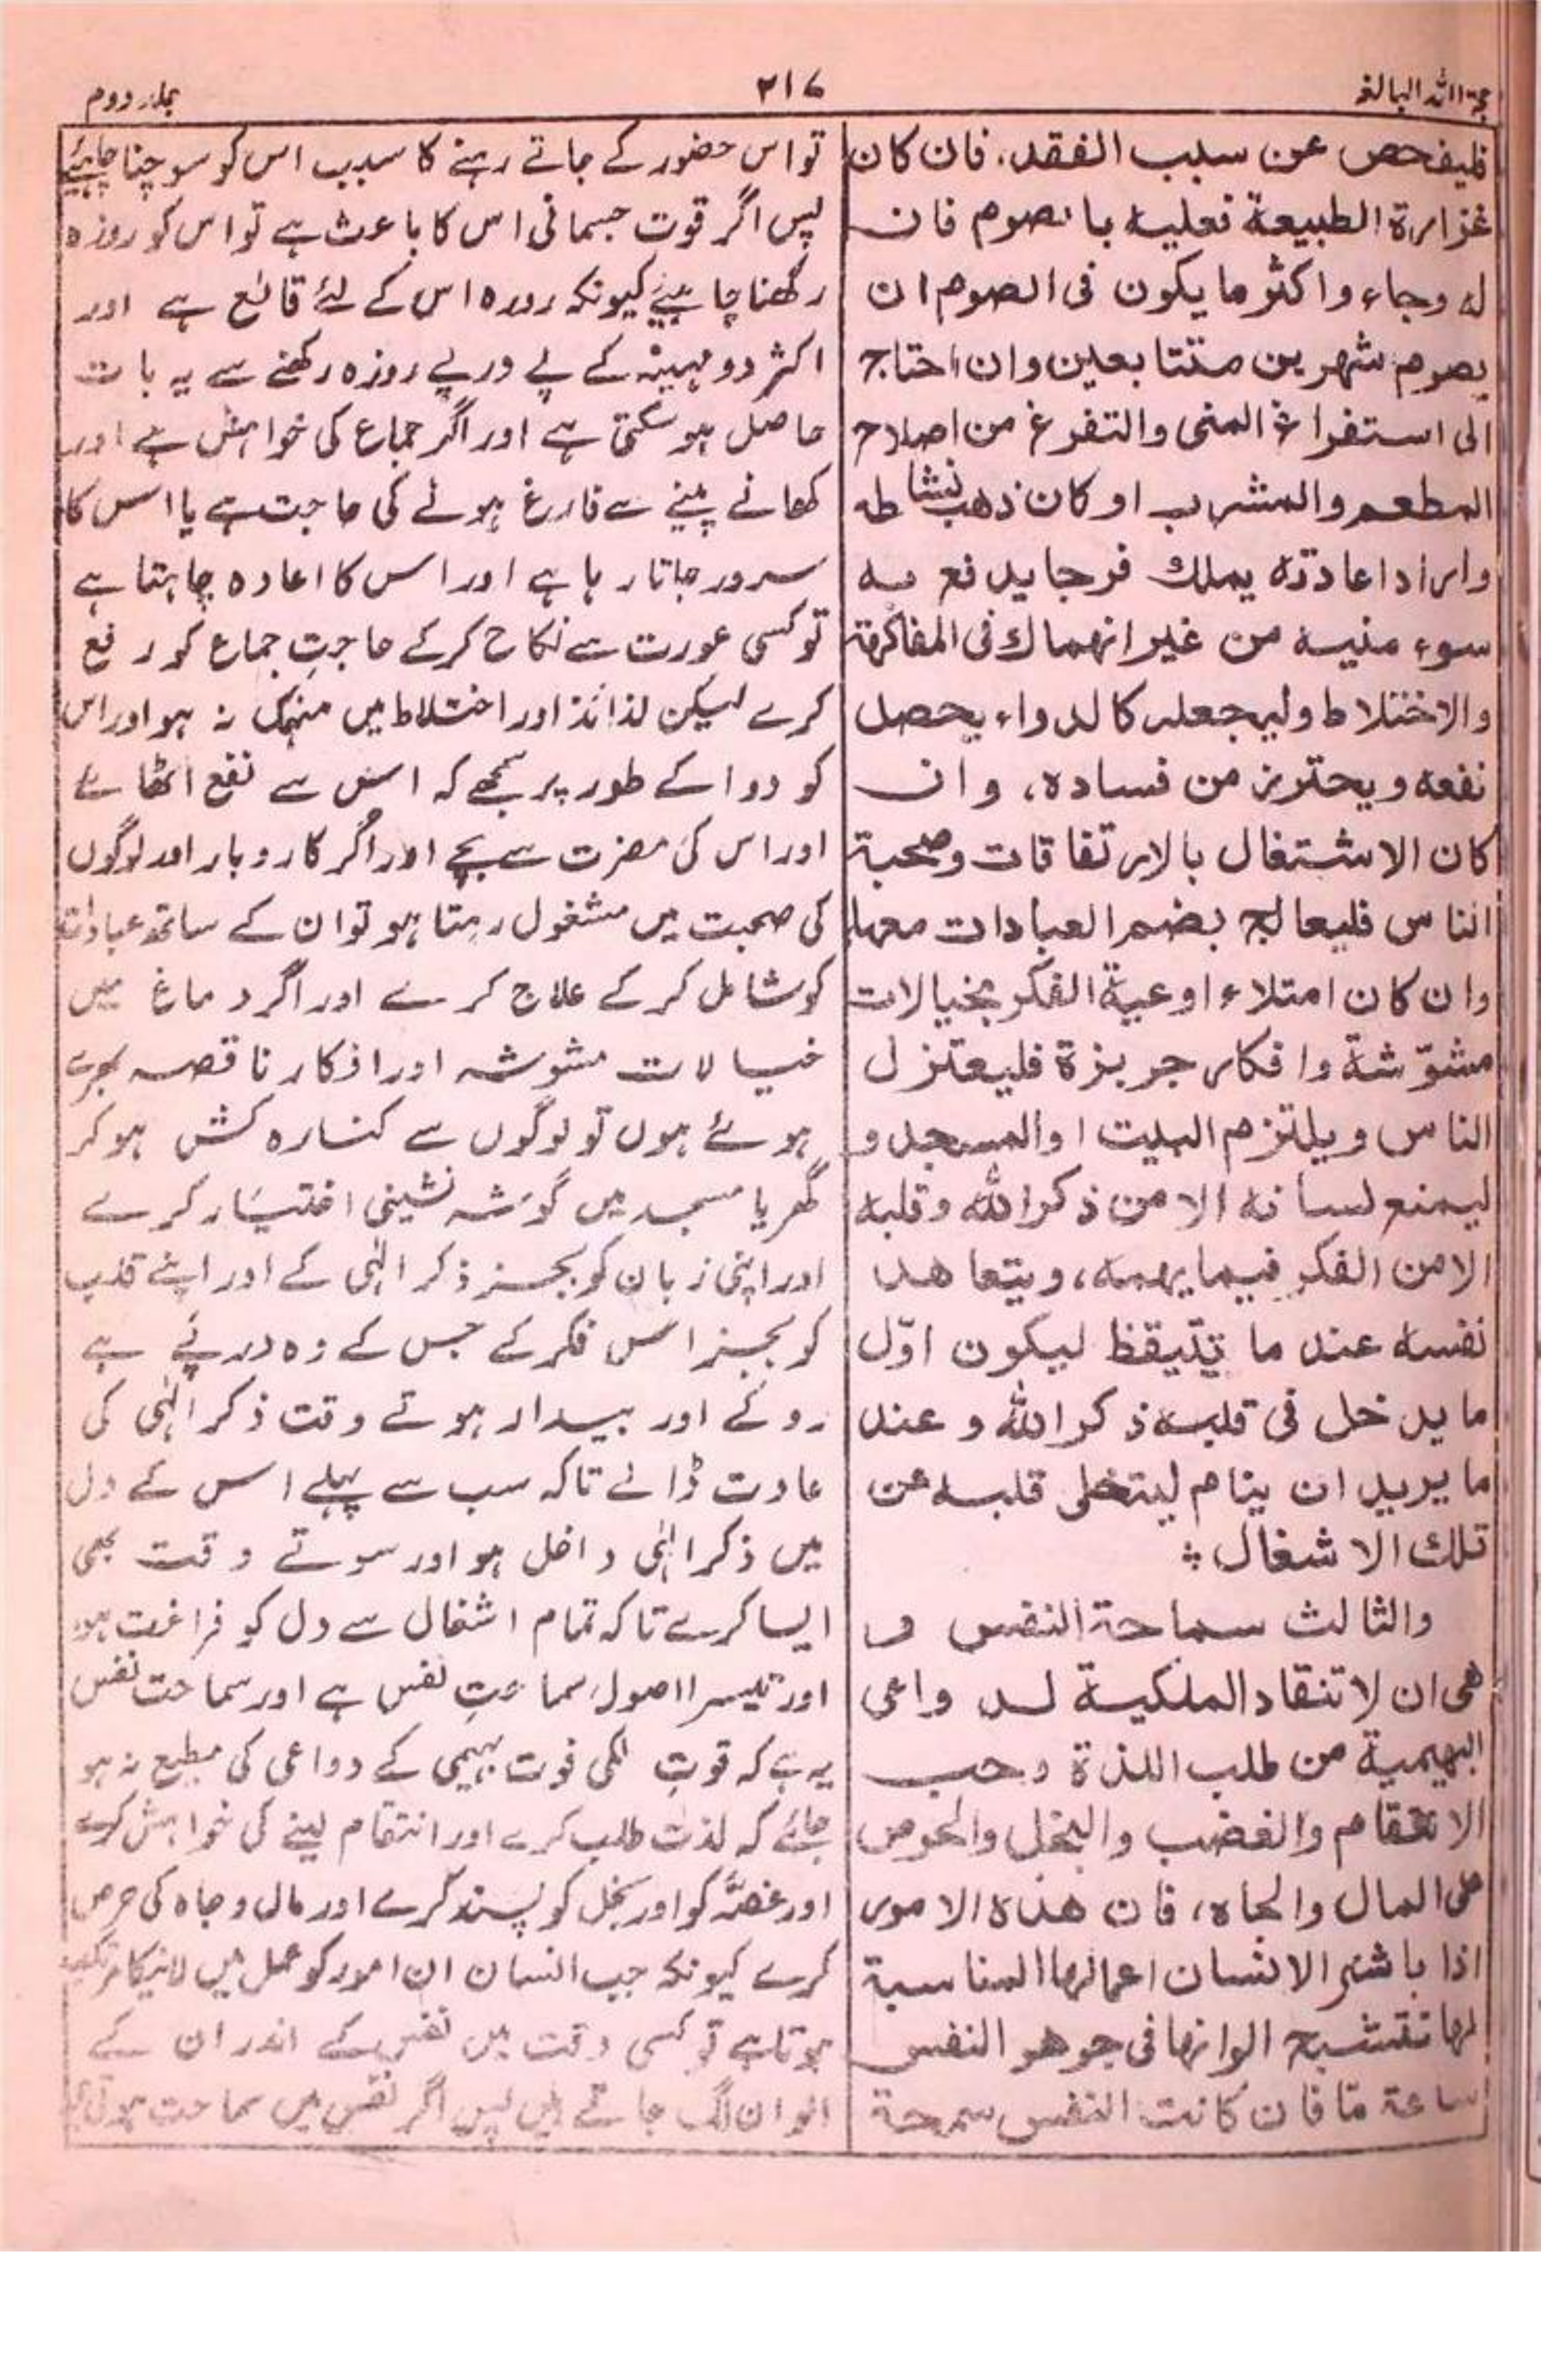 حجۃ اللہ البالغہ
۲۱۶
جلد دوم
فليفحص عن سبب الفقد، فان كان
غزارة الطبيعة فعليه بالصوم فان
له وجاء واكثر ما يكون فى الصوم ان
يصوم شهرين متتابعين وان احتاج
الى استفراغ المنى والتفرغ من اصلاح
المطعم والمشرب او كان ذهب نشاطه
واراد اعادته يملك فرجا يدفع به
سوء منيه من غير انهماك فى المفاكهة
والاختلاط وليجعله كالدواء يحصل
نفعه ويحترز من فساده، وان
كان الاشتغال بالارتفاقات وصحبة
الناس فليعالج بضم العبادات معها
وان كان امتلاء اوعية الفكر بخيالات
مشوّشة وافكار جربزة فليعتزل
الناس ويلتزم البيت او المسجد و
ليمنع لسانه الا من ذكر الله وقلبه
الا من الفكر فيما يهمه، ويتعاهد
نفسه عند ما يتيقظ ليكون اوّل
ما يدخل فى قلبه ذكر الله و عند
ما يريد ان ينام ليتخلى قلبه عن
تلك الاشغال ؞
والثالث سماحة النفس و
هى ان لا تنقاد الملكية لدواعى
البهيمية من طلب اللذة وحب
الانتقام والغضب والبخل والحرص
على المال والجاه، فان هذه الامور
اذا باشر الانسان اعمالها المناسبة
لها تتشبح الوانها فى جوهر النفس
ساعة مّا فان كانت النفس سمحة
تو اس حضور کے جاتے رہنے کا سبب اس کو سوچنا چاہیئے
پس اگر قوت جسمانی اس کا باعث ہے تو اس کو روزہ
رکھنا چاہیئے کیونکہ روزہ اس کے لئے قاطع ہے اور
اکثر دو مہینہ کے پے در پے روزہ رکھنے سے یہ بات
حاصل ہو سکتی ہے اور اگر جماع کی خواہش ہے اور
کھانے پینے سے فارغ ہونے کی حاجت ہے یا اس کا
سرور جاتا رہا ہے اور اس کا اعادہ چاہتا ہے
تو کسی عورت سے نکاح کر کے حاجتِ جماع کو رفع
کرے لیکن لذائذ اور اختلاط میں منہمک نہ ہو اور اس
کو دوا کے طور پر سمجھے کہ اس سے نفع اٹھائے
اور اس کی مضرت سے بچے اور اگر کاروبار اور لوگوں
کی صحبت میں مشغول رہتا ہو تو ان کے ساتھ عبادات
کو شامل کر کے علاج کرے اور اگر دماغ میں
خیالات مشوشہ اور افکار ناقصہ بھرے
ہوئے ہوں تو لوگوں سے کنارہ کش ہو کر
گھر یا مسجد میں گوشہ نشینی اختیار کرے
اور اپنی زبان کو بجز ذکر الٰہی کے اور اپنے قلب
کو بجز اس فکر کے جس کے وہ درپے ہے
روکے اور بیدار ہوتے وقت ذکر الٰہی کی
عادت ڈالے تاکہ سب سے پہلے اس کے دل
میں ذکر الٰہی داخل ہو اور سوتے وقت بھی
ایسا کرے تاکہ تمام اشغال سے دل کو فراغت ہو
اور تیسرا اصول سماحتِ نفس ہے اور سماحت نفس
یہ ہے کہ قوتِ ملکی قوت بہیمی کے دواعی کی مطیع نہ ہو
جائے کہ لذت طلب کرے اور انتقام لینے کی خواہش کرے
اور غصّہ کو اور بخل کو پسند کرے اور مال و جاہ کی حرص
کرے کیونکہ جب انسان ان امور کو عمل میں لانیکا مرتکب
ہوتا ہے تو کسی وقت میں نفس کے اندر ان کے
الوان لگ جاتے ہیں پس اگر نفس میں سماحت ہوتی ہے